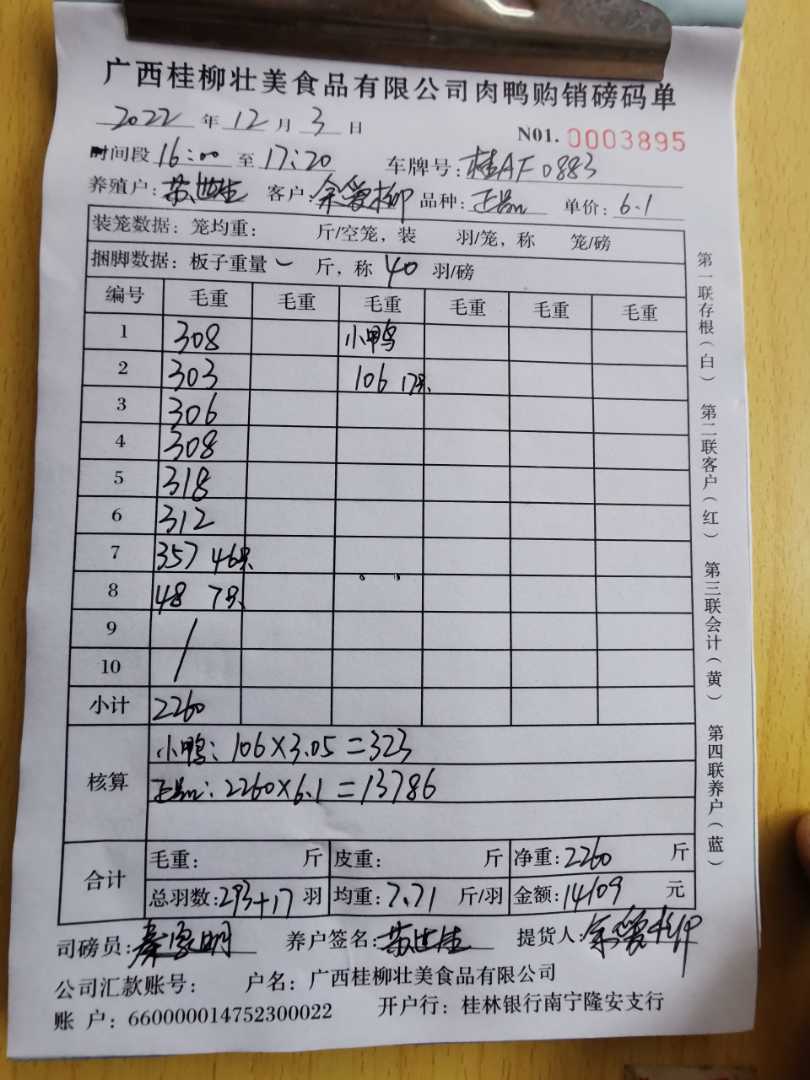 广西桂柳壮美食品有限公司肉鸭购销磅码单
2022 年 12 月 3 日 N01. 0003895
时间段 16:00 至 17:20 车牌号: 桂AF0883
养殖户: 客户: 余爱柳 品种: 正品 单价: 6.1
装笼数据: 笼均重: 斤/空笼, 装 羽/笼, 称 笼/磅
捆脚数据: 板子重量 斤, 称 40 羽/磅
编号 毛重 毛重 毛重 毛重 毛重 毛重
1 308 小鸭
2 303 106 17只
3 306
4 308
5 318
6 312
7 357 46只
8 48 7只
9 /
10
小计 2260
核算 小鸭: 106×3.05=323
正品: 2260×6.1=13786
合计 毛重: 斤 皮重: 斤 净重: 2260 斤
总羽数: 293+17 羽 均重: 7.71 斤/羽 金额: 14109 元
司磅员: 养户签名: 提货人: 余爱柳
公司汇款账号: 户名: 广西桂柳壮美食品有限公司
账 户: 660000014752300022 开户行: 桂林银行南宁隆安支行
第一联存根(白) 第二联客户(红) 第三联会计(黄) 第四联养户(蓝)